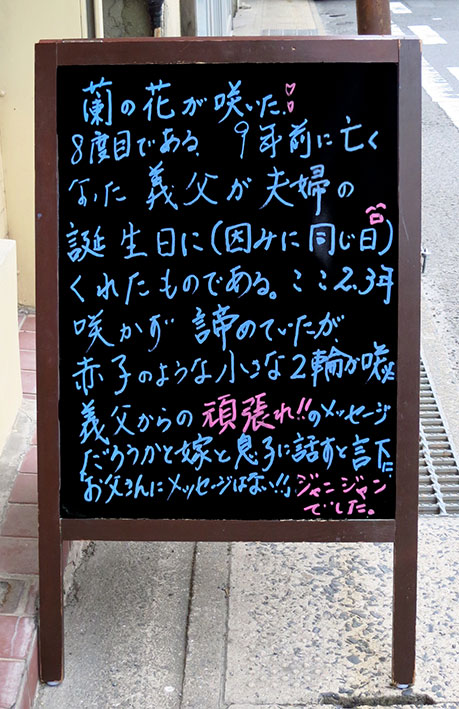 蘭の花が咲いた。
8度目である。 9年前に亡く
なった 義父が 夫婦の
誕生日に(因みに同じ日)
くれたものである。ここ2.3年
咲かず 諦めていたが、
赤子のような小さな2輪が咲た
義父からの 頑張れ!!のメッセージ
だろうかと嫁と息子に話すと言下に
「お父さんにメッセージはない!!」ジャンジャン
でした。